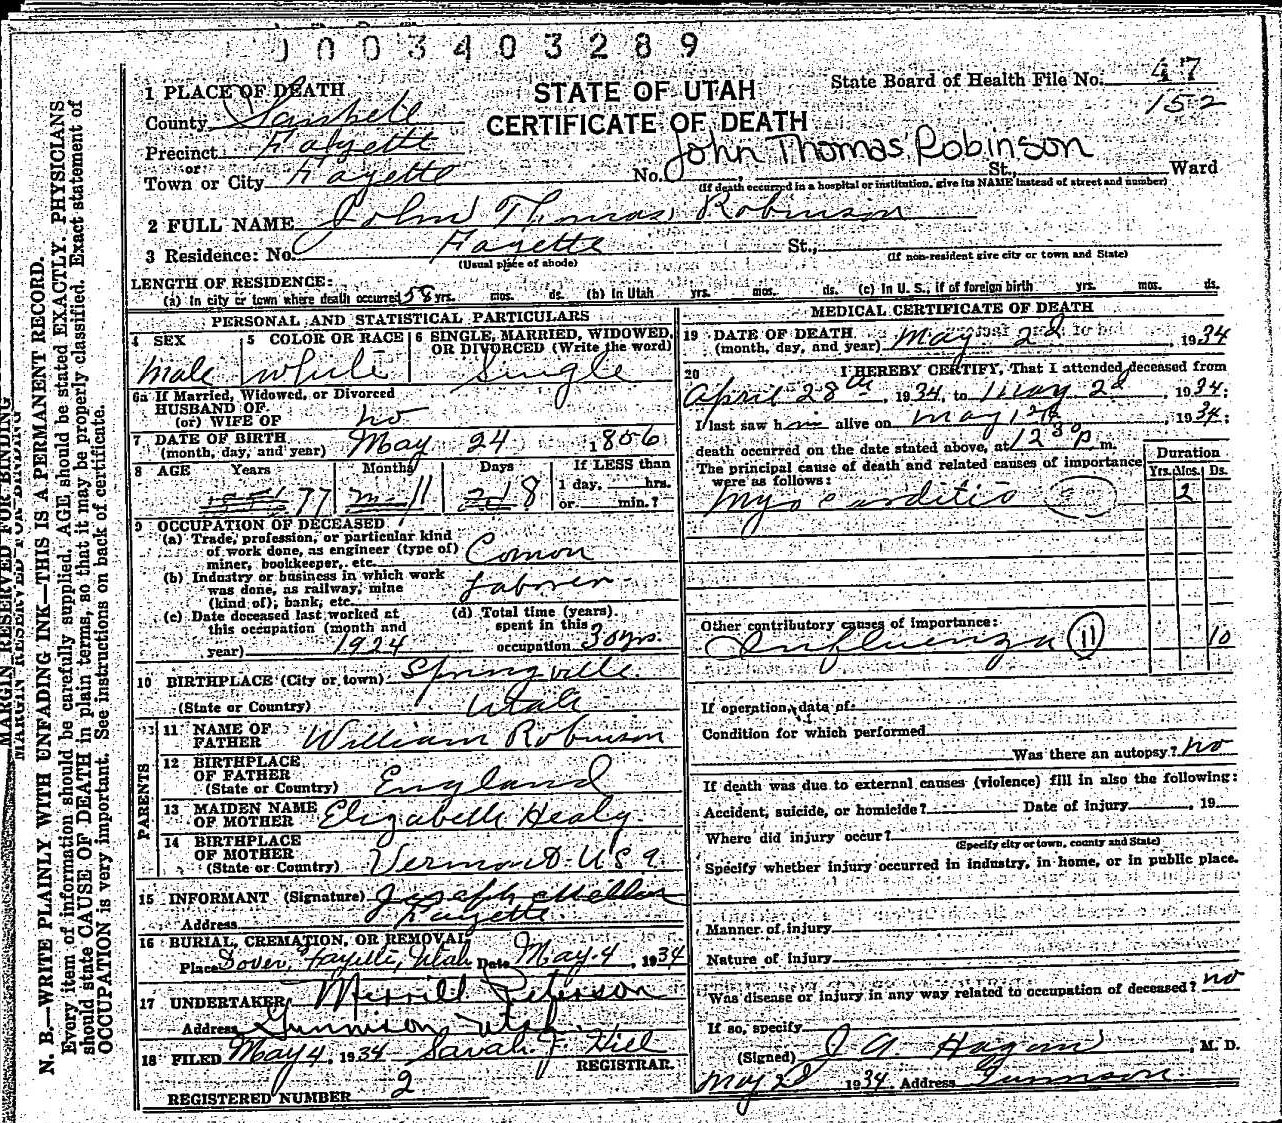 0003403289
State Board of Health File No. 47
152
STATE OF UTAH
CERTIFICATE OF DEATH
1 PLACE OF DEATH
County Sanpete
Precinct Fayette
or
Town or City Fayette No. St., Ward
John Thomas Robinson
(If death occurred in a hospital or institution, give its NAME instead of street and number)
2 FULL NAME John Thomas Robinson
3 Residence: No. Fayette St.,
(Usual place of abode) (If non-resident give city or town and State)
LENGTH OF RESIDENCE:
(a) In city or town where death occurred 58 yrs. mos. ds. (b) In Utah yrs. mos. ds. (c) In U. S., if of foreign birth yrs. mos. ds.
PERSONAL AND STATISTICAL PARTICULARS
4 SEX 5 COLOR OR RACE 6 SINGLE, MARRIED, WIDOWED, OR DIVORCED (Write the word)
Male White Single
6a If Married, Widowed, or Divorced
HUSBAND OF
(or) WIFE OF no
7 DATE OF BIRTH
(month, day, and year) May 24 1856
8 AGE Years Months Days If LESS than
1 day, hrs.
or min.?
77 11 8
9 OCCUPATION OF DECEASED
(a) Trade, profession, or particular kind
of work done, as engineer (type of)
miner, bookkeeper, etc. Comon
(b) Industry or business in which work
was done, as railway, mine
(kind of); bank, etc. Laborer
(c) Date deceased last worked at
this occupation (month and
year) 1924
(d) Total time (years)
spent in this
occupation 30 yrs.
10 BIRTHPLACE (City or town) Springville
(State or Country) Utah
PARENTS
11 NAME OF
FATHER William Robinson
12 BIRTHPLACE
OF FATHER
(State or Country) England
13 MAIDEN NAME
OF MOTHER Elizabeth Healy
14 BIRTHPLACE
OF MOTHER
(State or Country) Vermont U S a
15 INFORMANT (Signature) Joseph Mellor
Address Fayette
16 BURIAL, CREMATION, OR REMOVAL
Place Dover, Fayette, Utah Date May 4, 1934
17 UNDERTAKER Merrill Peterson
Address Gunnison Utah
18 FILED May 4, 1934 Sarah J
REGISTRAR.
REGISTERED NUMBER 2
MEDICAL CERTIFICATE OF DEATH
19 DATE OF DEATH
(month, day, and year) May 2d, 1934
20 I HEREBY CERTIFY, That I attended deceased from
April 28th, 1934, to May 2d, 1934;
I last saw him alive on May, 1934;
death occurred on the date stated above, at 12 30 p m.
The principal cause of death and related causes of importance
were as follows:
Duration
Yrs. Mos. Ds.
Myocarditis 2
Other contributory causes of importance:
Influenza 11 10
If operation, date of:
Condition for which performed
Was there an autopsy? no
If death was due to external causes (violence) fill in also the following:
Accident, suicide, or homicide? Date of injury, 19
Where did injury occur?
(Specify city or town, county and State)
Specify whether injury occurred in industry, in home, or in public place.
Manner of injury
Nature of injury
Was disease or injury in any way related to occupation of deceased? no
If so, specify
(Signed) J A Hagan, M. D.
May 2d 1934 Address Gunnison.
MARGIN RESERVED FOR BINDING
N. B.—WRITE PLAINLY WITH UNFADING INK—THIS IS A PERMANENT RECORD.
Every item of information should be carefully supplied. AGE should be stated EXACTLY. PHYSICIANS
should state CAUSE OF DEATH in plain terms, so that it may be properly classified. Exact statement of
OCCUPATION is very important. See instructions on back of certificate.